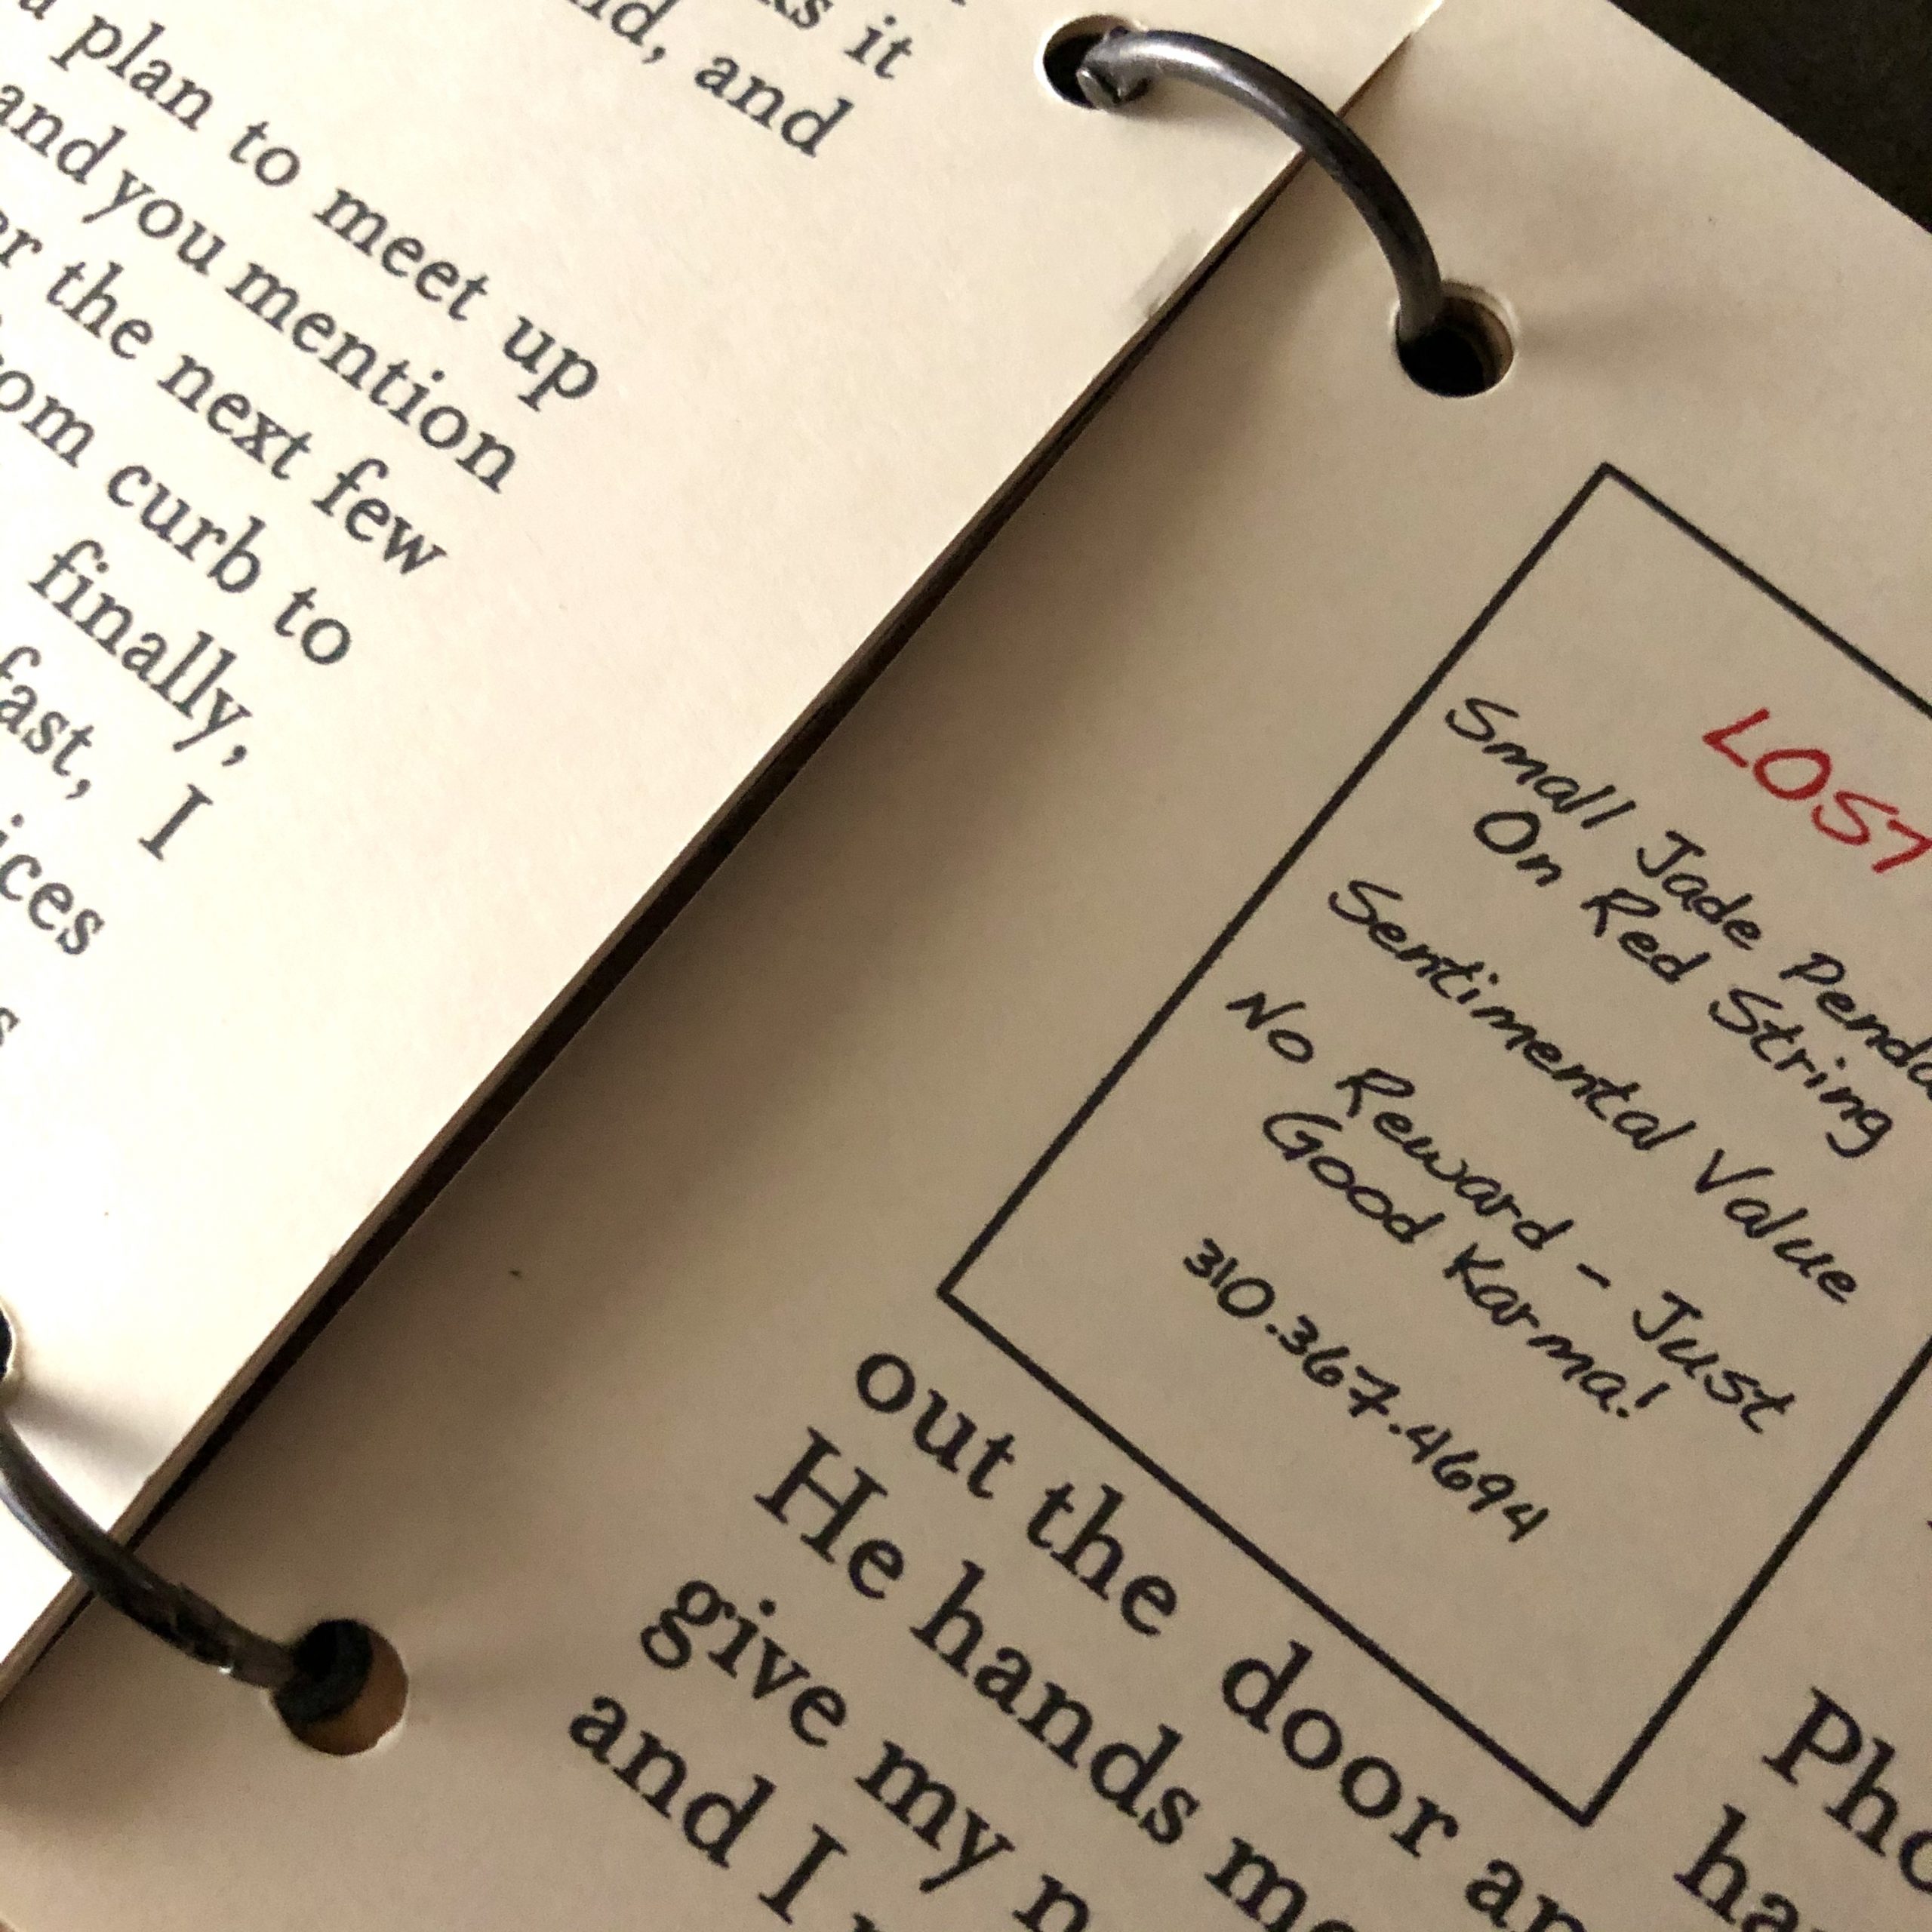 it
and
plan to meet up
and you mention
the next few
curb to
finally,
fast, I
LOST
Small Jade
On Red String
Sentimental Value
No Reward - Just
Good Karma!
310.367.4694
out the door
He hands
give my
and I